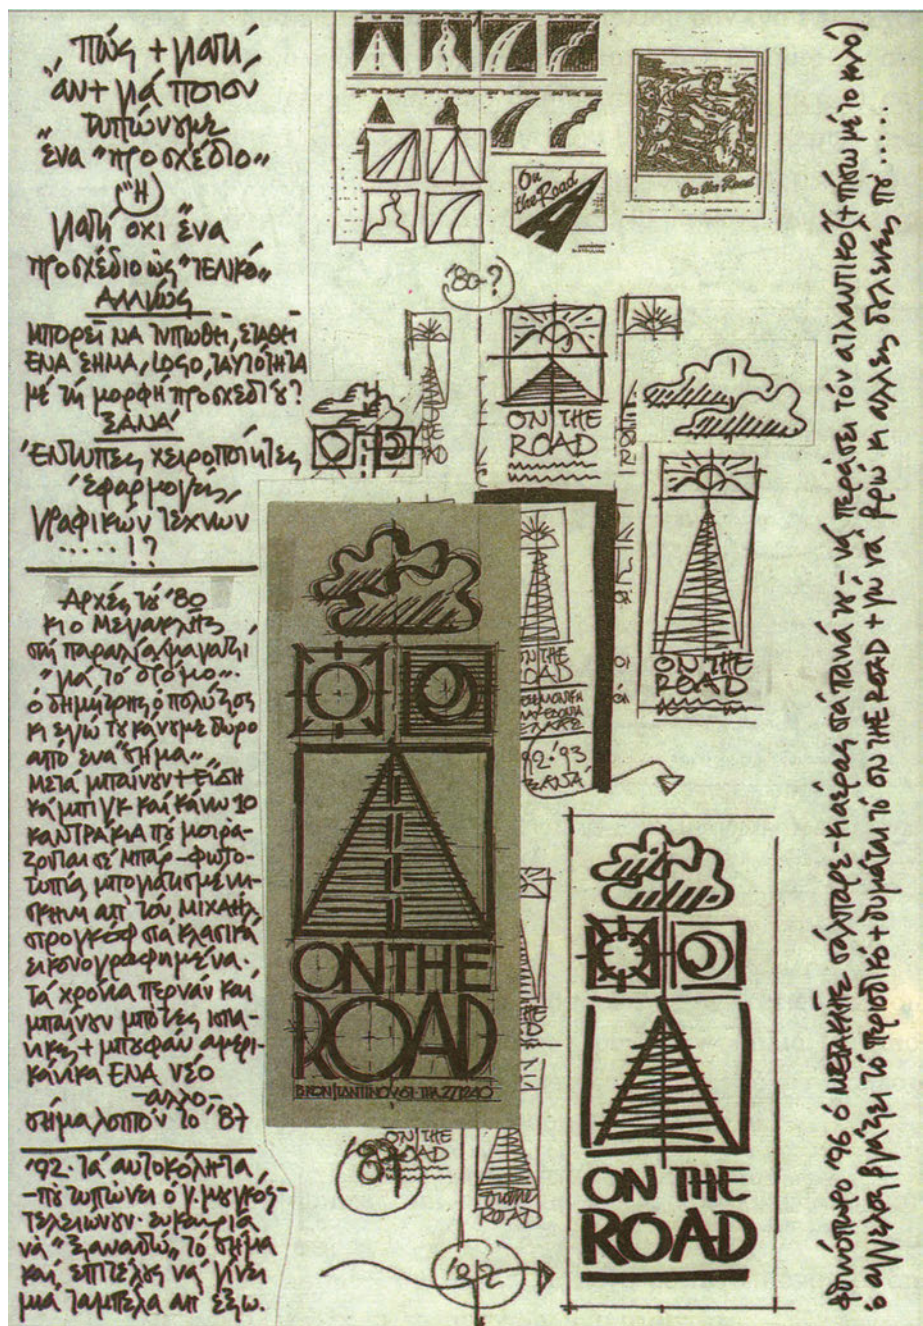 πώς + γιατί,
αν + γιά ποιον
τυπώνουμε
ένα "προσχέδιο"
(ή)
γιατί όχι ένα
προσχέδιο ως "ΤΕΛΙΚΟ"
ΑΛΛΙΩΣ
ΜΠΟΡΕΙ ΝΑ ΤΥΠΩΘΗ, ΣΤΑΘΗ
ΕΝΑ ΣΗΜΑ, LOGO, ΤΑΥΤΟΤΗΤΑ
μέ τη μορφή προσχεδίου?
ΞΑΝΑ
ΈΝΤΥΠΕΣ χειροποίητες
Έφαρμογές
γραφικών τεχνών
.....!?
Αρχές του '80
κι ο Μεγακλής
στη παραλία μαγαζί
"γιά το δρόμο".
ο δημήτρης ο πολύζος
κι εγώ του κάνουμε δώρο
από ένα "σήμα"
Μετά μπαίνουν + ΕΙΔΗ
κάμπιγκ και κάνω 10
καΝΤΡΑΚΙΑ που μοιρά-
ζονται σε μπάρ - φωτο-
τυπία, μπογιατισμένη-
απ' τον ΜΙΧΑΗΛ
στρογκόφ στα κλασικά
εικονογραφημένα.
Τα χρόνια περνάν και
μπαίνουν μπότες ισπα-
νικές + μπουφάν αμερι-
κάνικα ΕΝΑ νέο
-αλλο-
σήμα λοιπόν το '87
'92. τα αυτοκόλητα,
-που τυπώνει ο γ. μυγκός-
τελειώνουν. ευκαιρία
να "ξαναδώ" το σήμα
και επιτέλους να γίνει
μιά ταμπέλα απ' έξω.
On
the Road
On the Road
'80-?
ON THE
ROAD
ON THE
ROAD
ON THE
ROAD
92-'93
ΞΑΝΑ
ON THE
ROAD
ΒΚΩΝΣΤΑΝΤΙΝΟΥ 61. ΤΗΛ 271240
ON THE
ROAD
87
ON THE
ROAD
92
ON THE
ROAD
φθινόπωρο '96 ο ΜΕΓΑΚΛΗΣ σάλταρε - κι αέρας στα πανιά του - να περάσει τον ατλαντικό (+ πίσω με το καλό)
ο άγγελος βγάζει το περιοδικό + θυμάται το ON THE ROAD + γώ να βρω κι αλλες δουλειες που .....